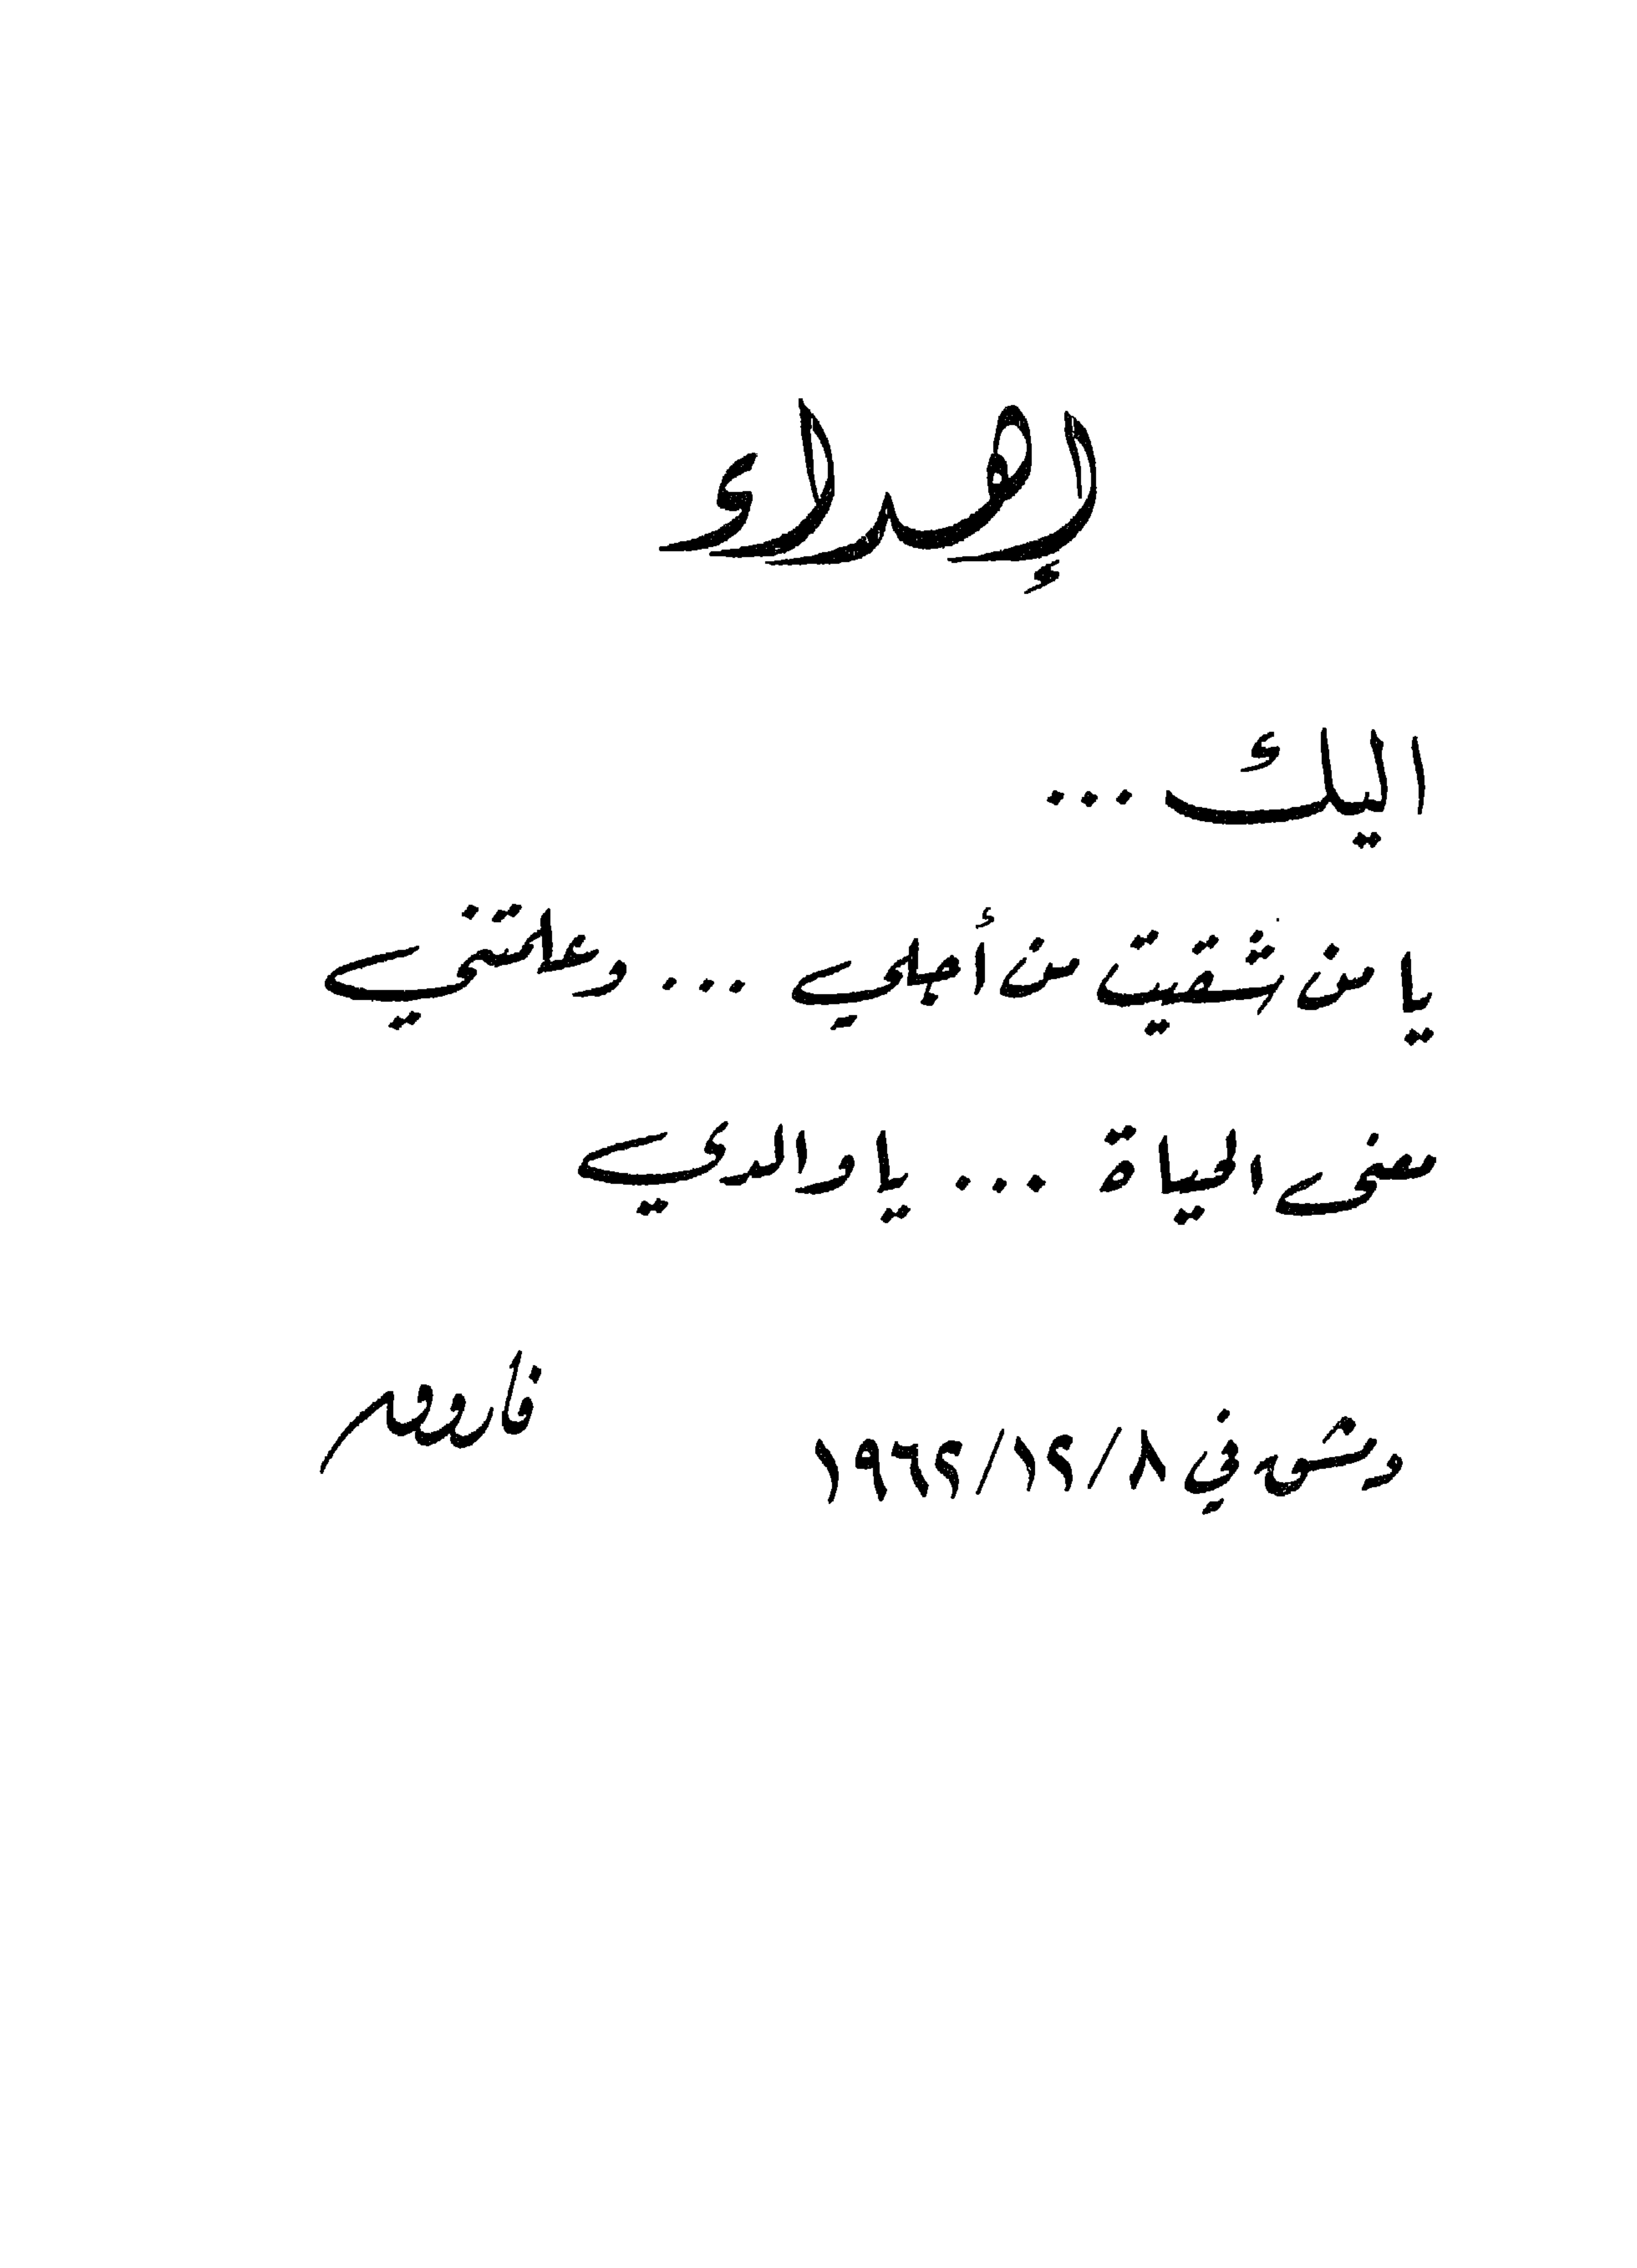 إهداء
اليك ...
يا من شقيت من أجلي ... وعلمتني
معنى الحياة ... يا والدي
فاروق
دمشق في ١٩٦٢/١٢/٨